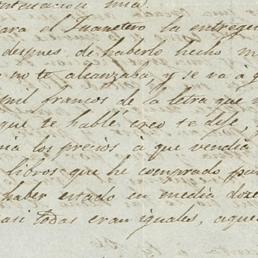 mia.
para el Juanetero la entregue
despues de haberlo hecho
no te alcanzaba, y se va á
mil francos de la letra que
que te hablé creo se dile,
los precios a que vendia
libros que he comprado para
haber estado en media doze
casi todas eran iguales, aque